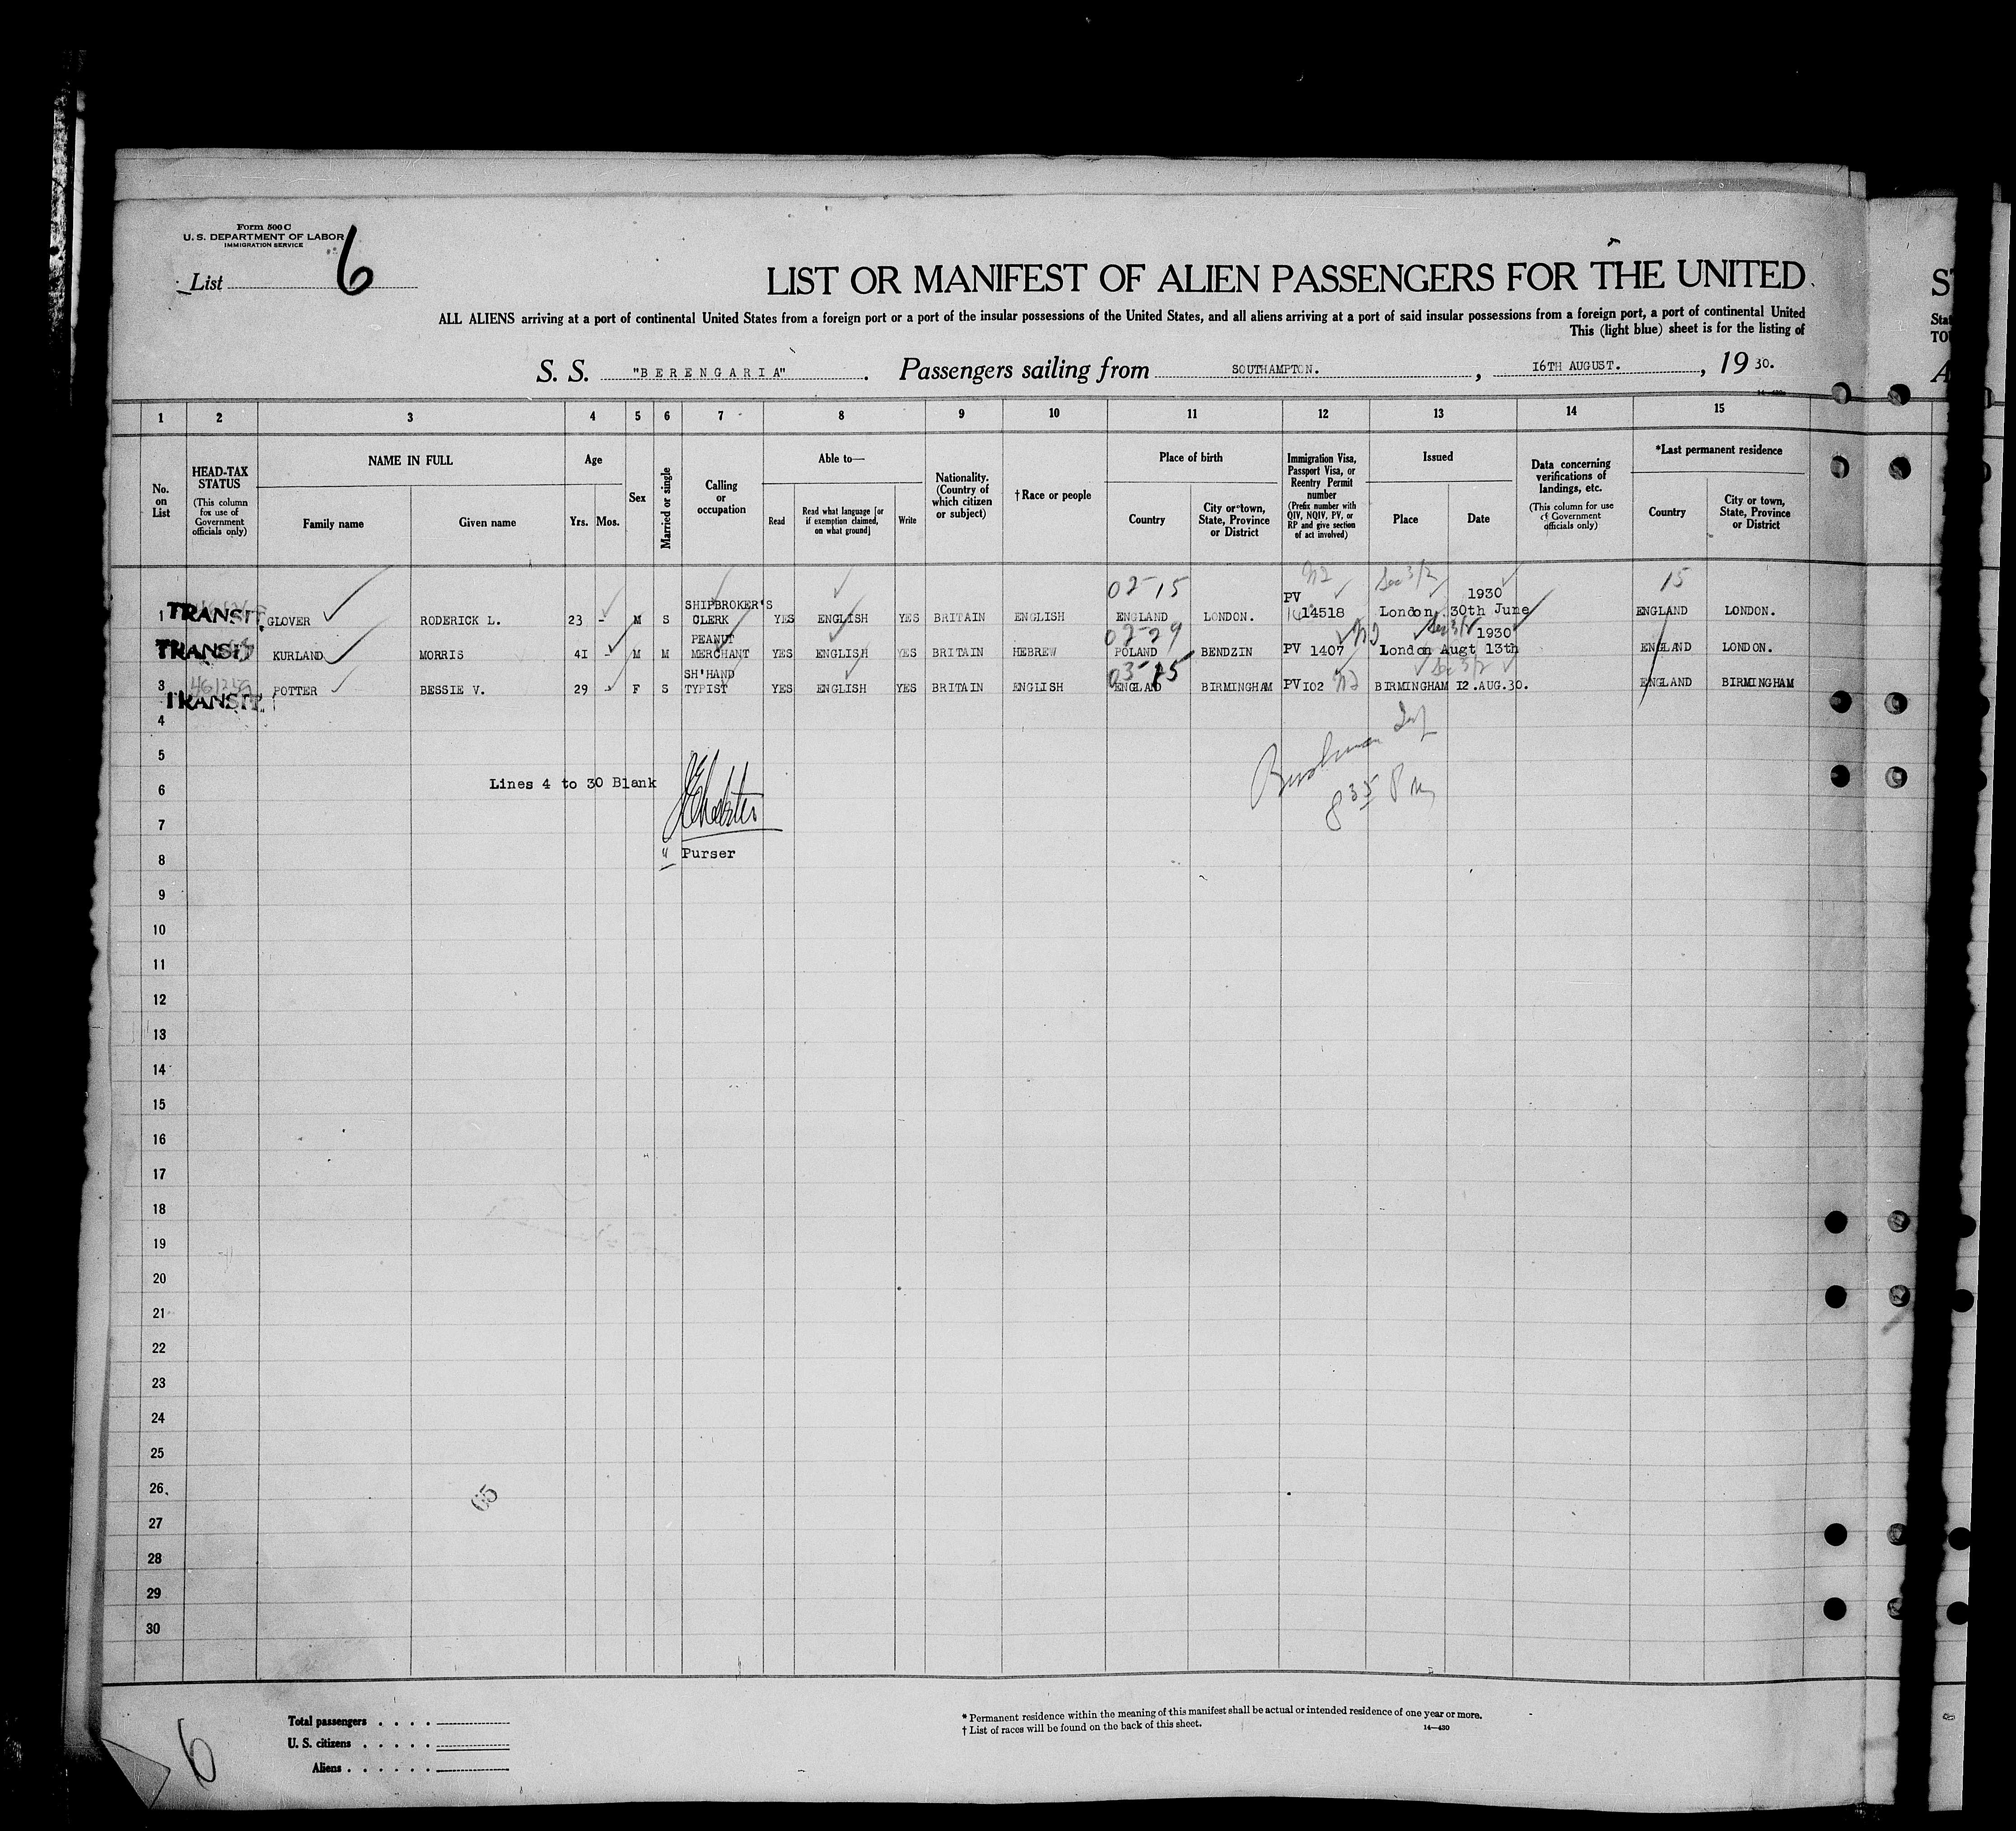 Form 500 C
U. S. DEPARTMENT OF LABOR
IMMIGRATION SERVICE
List 6
LIST OR MANIFEST OF ALIEN PASSENGERS FOR THE UNITED
ALL ALIENS arriving at a port of continental United States from a foreign port or a port of the insular possessions of the United States, and all aliens arriving at a port of said insular possessions from a foreign port, a port of continental United
This (light blue) sheet is for the listing of
S. S. "BERENGARIA". Passengers sailing from SOUTHAMPTON. , 16TH AUGUST. , 19 30.
1 2 3 4 5 6 7 8 9 10 11 12 13 14 15
No. on List
HEAD-TAX STATUS
(This column for use of Government officials only)
NAME IN FULL
Family name Given name
Age
Yrs. Mos.
Sex
Married or single
Calling or occupation
Able to—
Read Read what language [or if exemption claimed, on what ground] Write
Nationality. (Country of which citizen or subject)
† Race or people
Place of birth
Country City or town, State, Province or District
Immigration Visa, Passport Visa, or Reentry Permit number
(Prefix number with QIV, NQIV, PV, or RP and give section of act involved)
Issued
Place Date
Data concerning verifications of landings, etc.
(This column for use of Government officials only)
*Last permanent residence
Country City or town, State, Province or District
02-15 Sec 3/2 15
1 TRANSIT GLOVER RODERICK L. 23 - M S SHIPBROKER'S CLERK YES ENGLISH YES BRITAIN ENGLISH ENGLAND LONDON. PV 14518 London. 30th June 1930 ENGLAND LONDON.
02-29 Sec 3/2
TRANSIT KURLAND MORRIS 41 - M M PEANUT MERCHANT YES ENGLISH YES BRITAIN HEBREW POLAND BENDZIN PV 1407 London Augt 13th 1930 ENGLAND LONDON.
03-15 Sec 3/2
3 TRANSIT POTTER BESSIE V. 29 - F S SH'HAND TYPIST YES ENGLISH YES BRITAIN ENGLISH ENGLAD BIRMINGHAM PV 102 BIRMINGHAM 12.AUG.30. ENGLAND BIRMINGHAM
4
5
Lines 4 to 30 Blank
6
8 35 PM
7
8
Purser
9
10
11
12
13
14
15
16
17
18
19
20
21
22
23
24
25
26
65
27
28
29
30
Total passengers
U. S. citizens
Aliens
* Permanent residence within the meaning of this manifest shall be actual or intended residence of one year or more.
† List of races will be found on the back of this sheet.
14—430
6